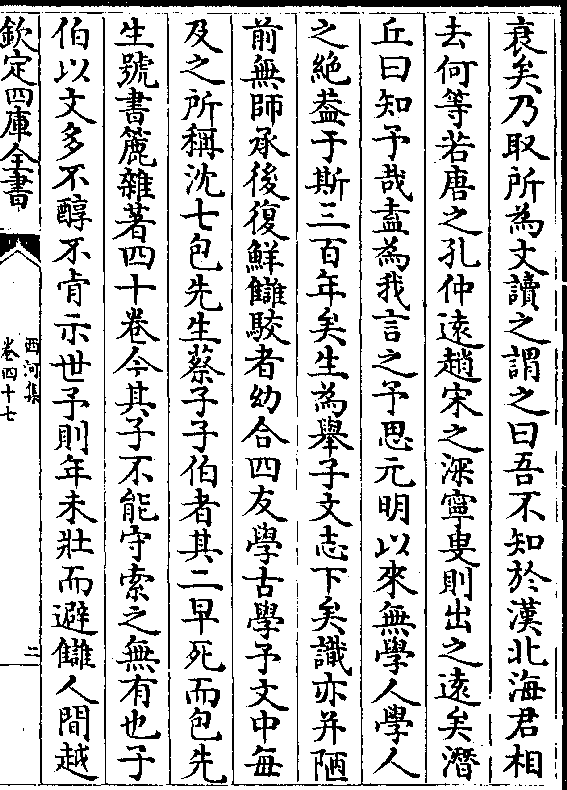 衰矣乃取所為文讀之謂之曰吾不知於漢北海君相
去何等若唐之孔仲遠趙宋之深寧叟則出之遠矣潛
丘曰知予哉盍為我言之予思元明以來無學人學人
之絶葢于斯三百年矣生為舉子文志下矣識亦并陋
前無師承後復鮮讎駮者幼合四友學古學予文中每
及之所稱沈七包先生蔡子子伯者其二早死而包先
生號書簏雜著四十卷今其子不能守索之無有也子
伯以文多不醇不肯示世予則年未壯而避讎人間越
欽定四庫全書
西河集
卷四十七
二